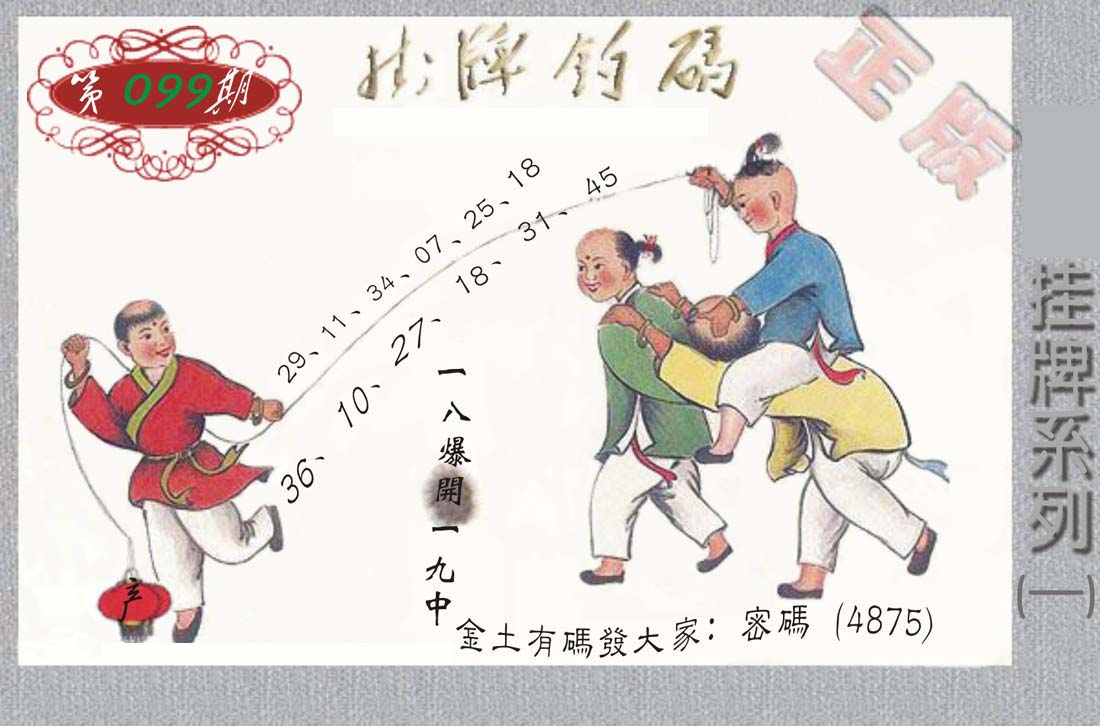 第099期
挂牌钓碼
正版
29、11、34、07、25、18
36、10、27、18、31、45
一八爆開一九中
产
金土有碼發大家：密碼（4875）
挂牌系列(一)